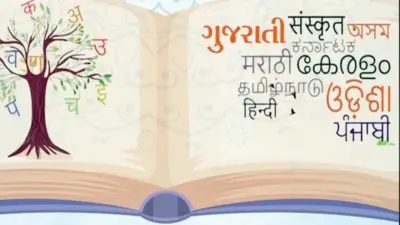 क
अ उ
प च इ
ગુજરાતી संस्कृत অসম
ಕರ್ನಾಟಕ
मराठी കേരളം
தமிழ்நாடு
हिन्दी ଓଡ଼ିଶା
ਪੰਜਾਬੀ